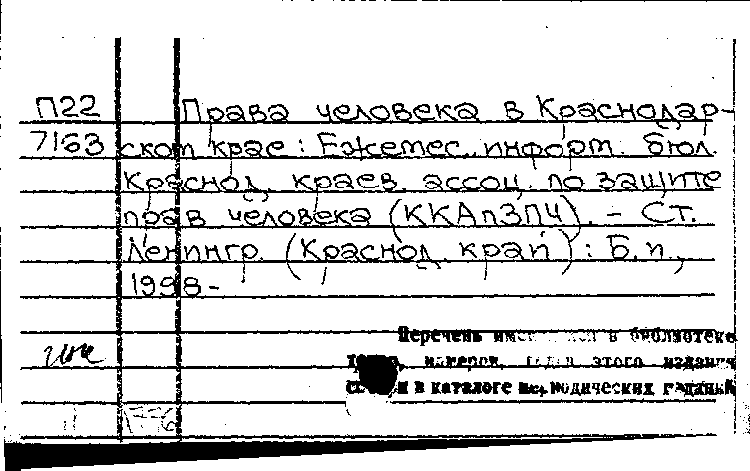 П22 Права человека в Краснодар-
7163 ском крае : Ежемес. информ. бюл.
Краснод. краев. ассоц. по защите
прав человека (ККАпЗПЧ). - Ст.
Ленингр. (Краснод. край) : Б.и.,
1998-
Перечень в библиотеке
номеров, этого издания
в каталоге периодических изданий